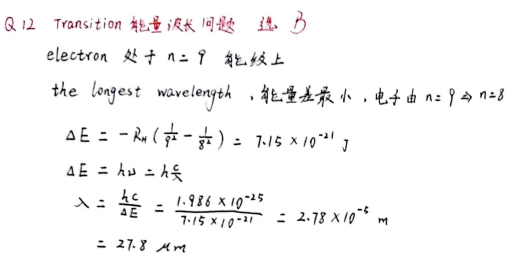 Q12 Transition 能量波长问题 选 B
electron 处于 n = 9 能级上
the longest wavelength , 能量差最小 , 电子由 n = 9 ⇒ n = 8
ΔE = - R_H ( 1/9² - 1/8² ) = 7.15 × 10⁻²¹ J
ΔE = hν = h c/λ
λ = hc/ΔE = 1.986 × 10⁻²⁵ / 7.15 × 10⁻²¹ = 2.78 × 10⁻⁵ m
= 27.8 μm